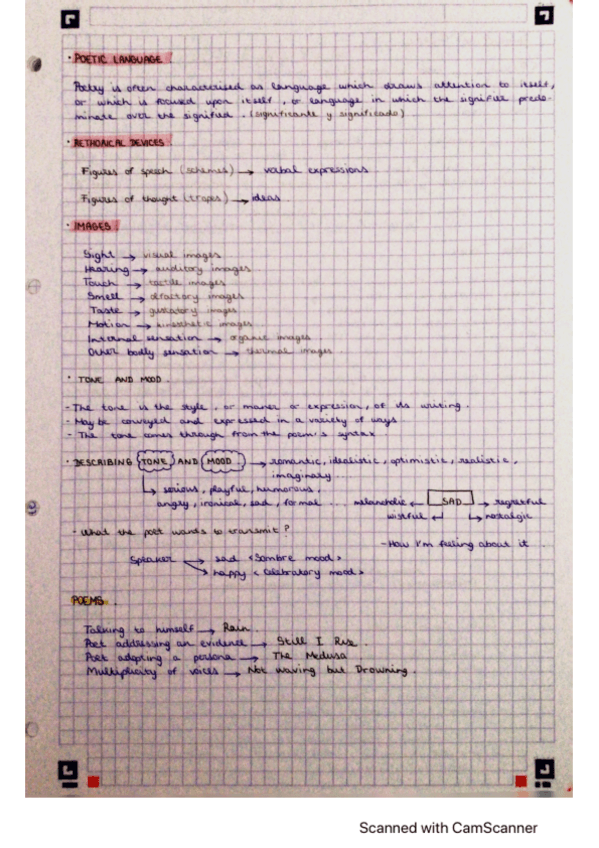 · POETIC LANGUAGE
Poetry is often characterised as language which draws attention to itself,
or which is focused upon itself, or language in which the signifier predo-
minate over the signified. (significante y significado)
· RETHORICAL DEVICES
Figures of speech (schemes) → verbal expressions
Figures of thought (tropes) → ideas
· IMAGES
Sight → visual images
Hearing → auditory images
Touch → tactile images
Smell → olfactory images
Taste → gustatory images
Motion → kinesthetic images
Internal sensation → organic images
Other bodily sensation → thermal images
· TONE AND MOOD.
- The tone is the style, or maner or expression, of its writing.
- May be conveyed and expressed in a variety of ways
- The tone comes through from the poem's syntax
· DESCRIBING TONE AND MOOD → romantic, idealistic, optimistic, realistic,
imaginary...
↳ serious, playful, humorous,
angry, ironical, sad, formal ... melancholic ← SAD → regretful
wistful ↵ ↳ nostalgic
- What the poet wants to transmit?
- How I'm feeling about it
Speaker → sad <Sombre mood>
→ happy <Celebratory mood>
POEMS.
Talking to himself → Rain.
Poet addressing an evidence → Still I Rise.
Poet adopting a persona → The Medusa
Multiplicity of voices → Not waving but Drowning.
Scanned with CamScanner